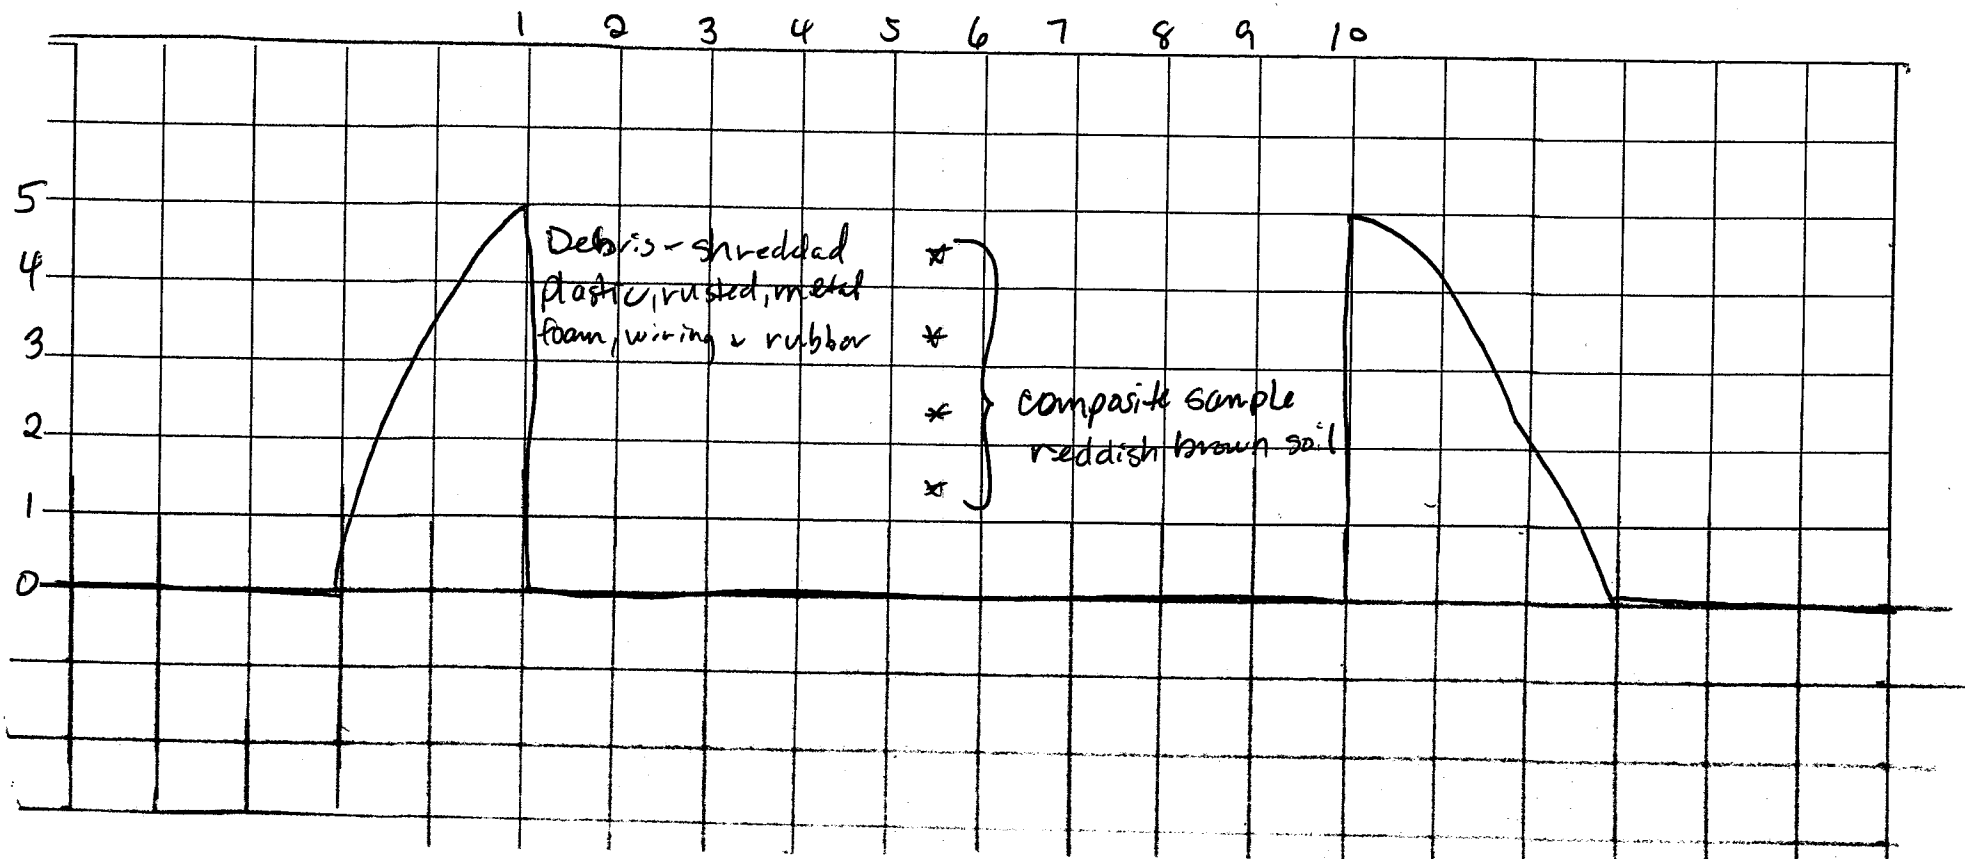 1 2 3 4 5 6 7 8 9 10
5
4
3
2
1
0
Debris - shreddad
plastic, rusted, metal
foam, wiring & rubber
* 
*
*
*
composite sample
reddish brown soil